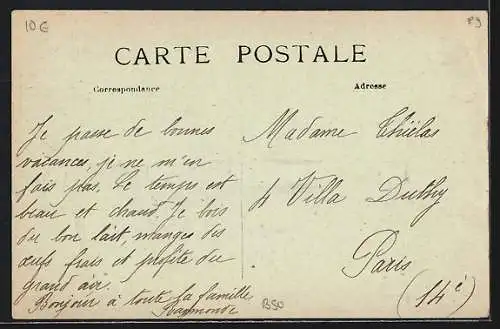 10 €
CARTE POSTALE
Correspondance
Adresse
Je passe de bonnes
vacances, je ne m'en
fais pas. Le temps est
beau et chaud. Je bois
du bon lait, manges des
œufs frais et profite du
grand air.
Bonjour à toute la famille
Raymonde
Madame Thiélas
4 Villa Duthy
Paris
(14è)
BSU